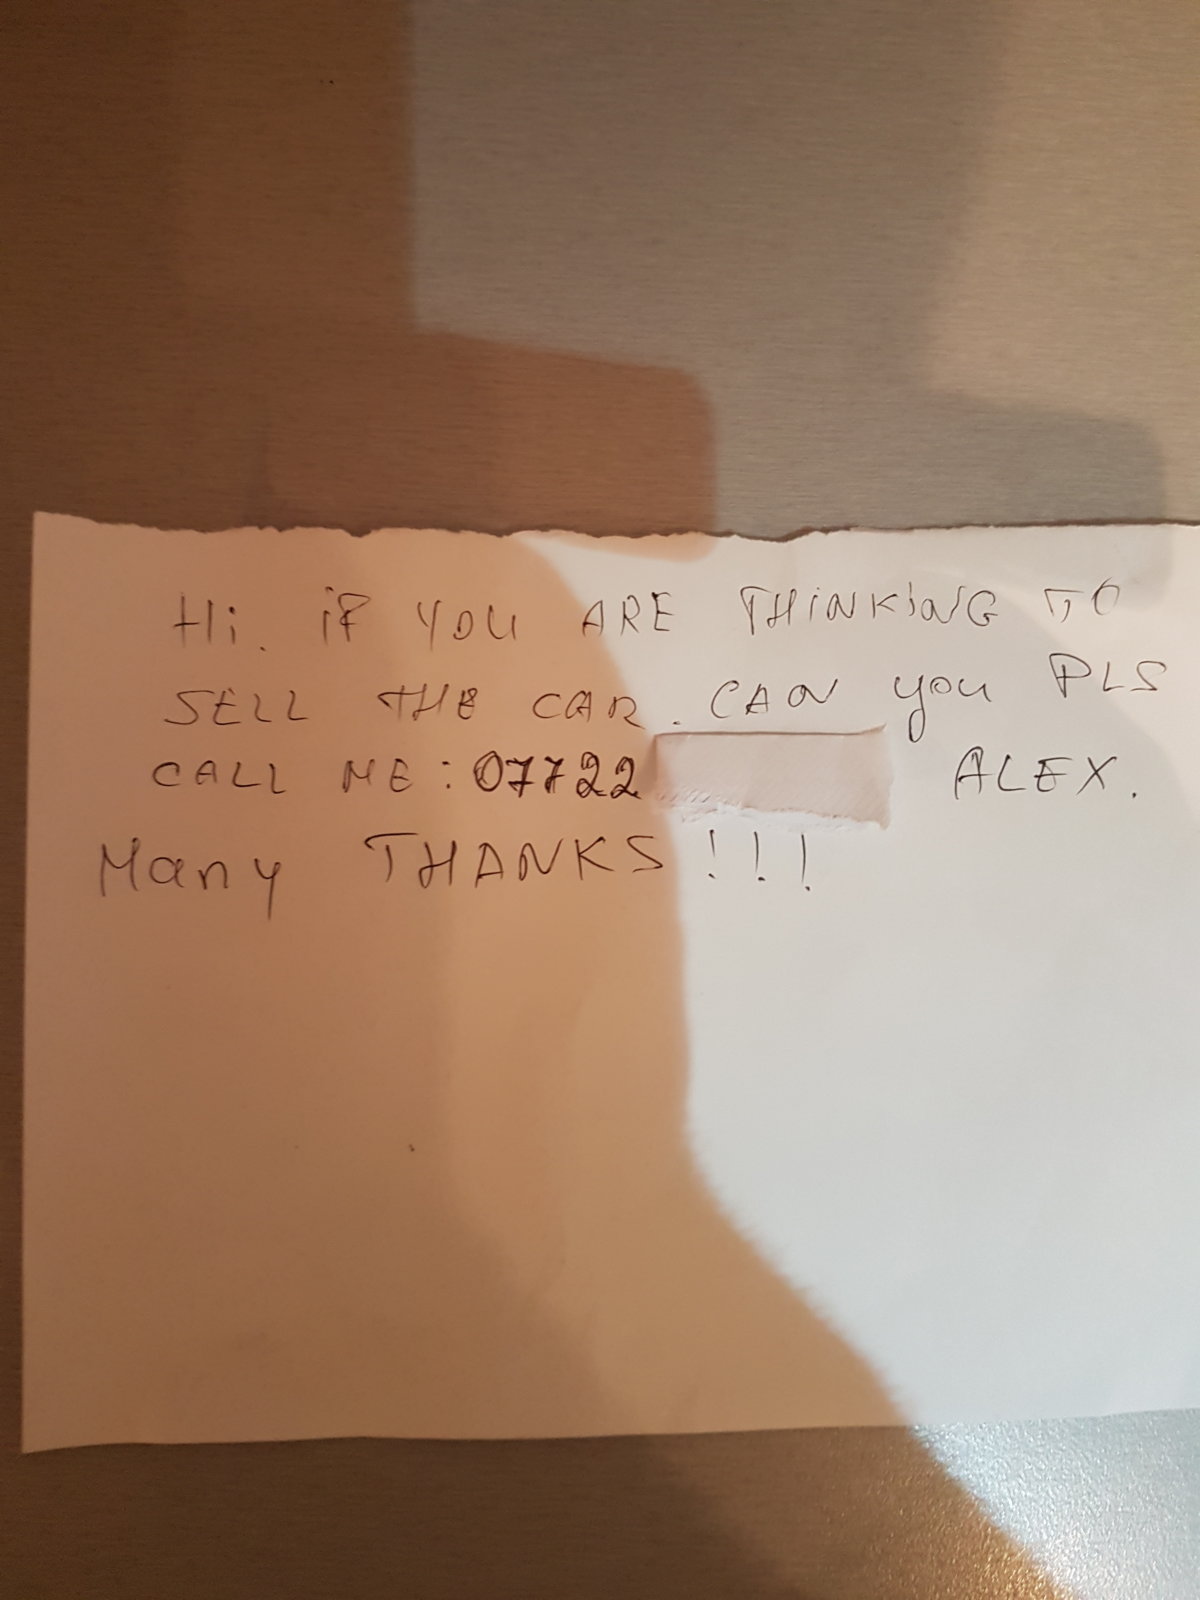 Hi. iF YOU ARE THiNKiNG TO
SELL THE CAR. CAN you PLS
CALL ME: 07722 ALEX.
Many THANKS!!!